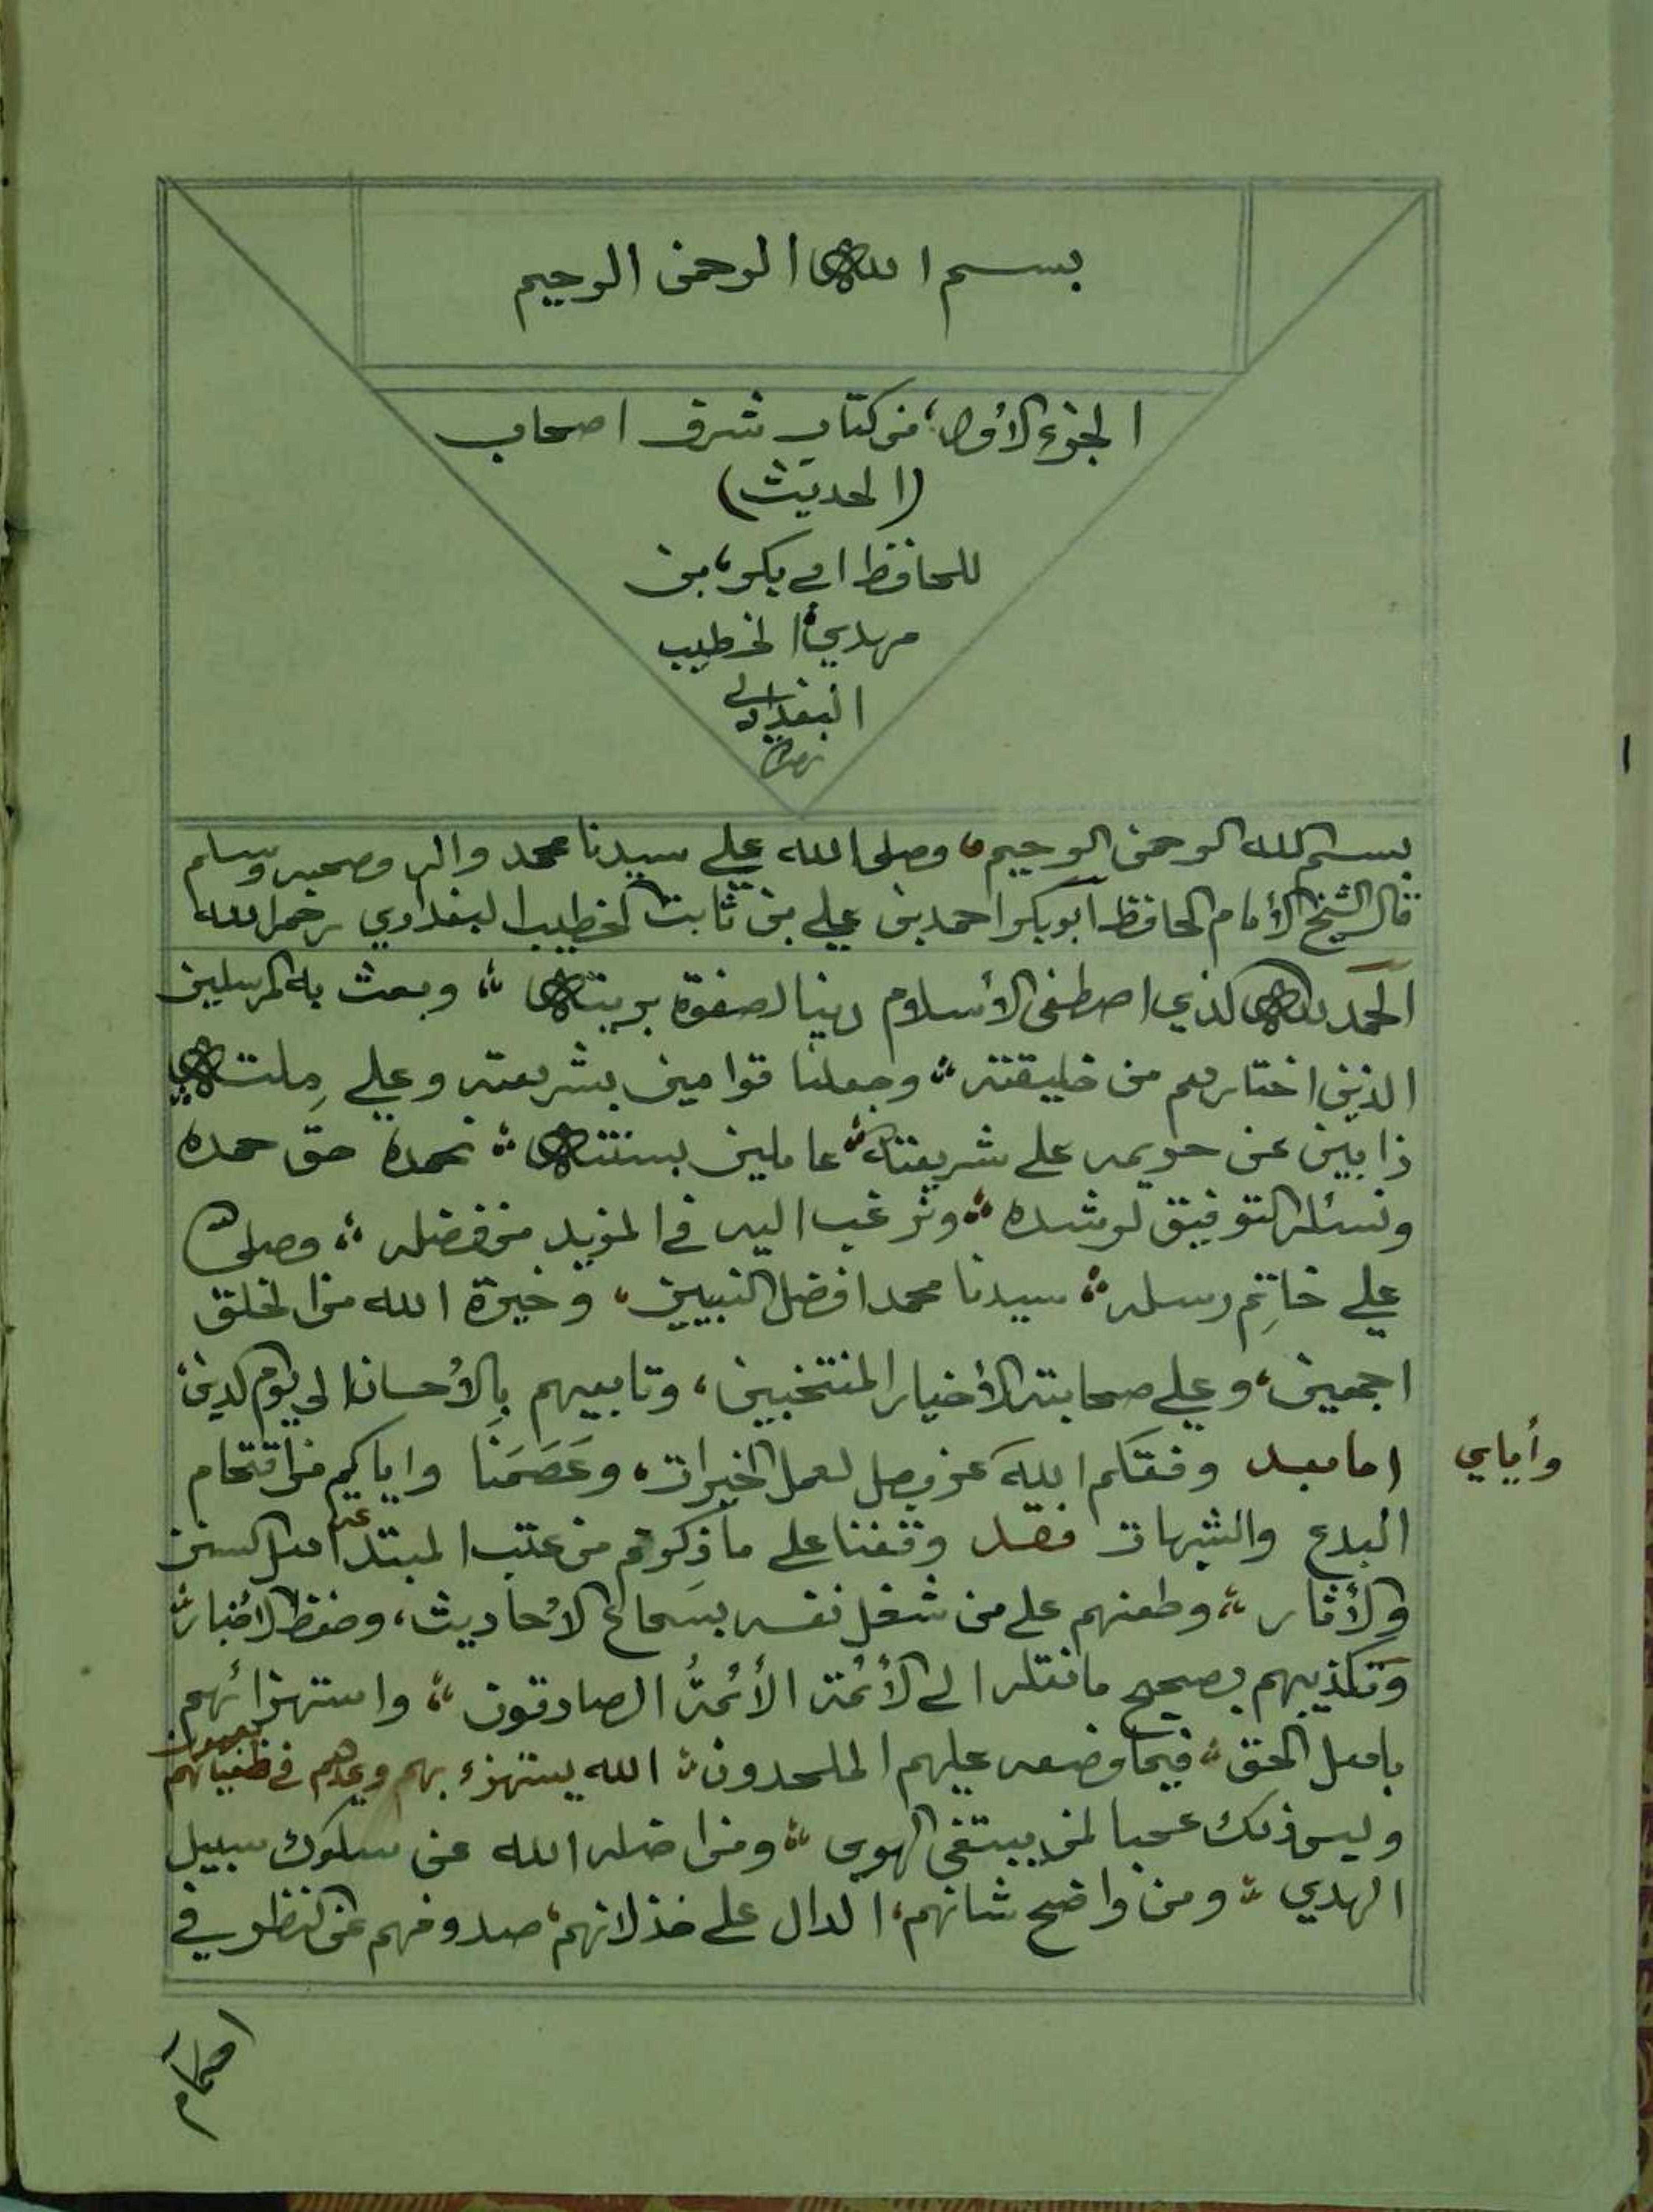 بسم الله الرحمن الرحيم
الجزء الأول من كتاب شرف اصحاب
(الحديث)
للحافظ ابي بكر، بن
مهدي الخطيب
البغدادي
بسم الله الرحمن الرحيم، وصلى الله علي سيدنا محمد واله وصحبه وسلم
قال الشيخ الأمام الحافظ ابو بكر احمد بن علي بن ثابت الخطيب البغدادي رحمه الله
الحمد لله الذي اصطفى الأسلام دينا لصفوة بريته ؛ وبعث به المرسلين
الذين اختارهم من خليقته ؛ وجعلنا قوامين بشريعته وعلي مِلته
ذابين عن حريمه على شريعته ؛ عاملين بسنته ؛ نحمده حق حمده
ونسئله التوفيق لرشده ؛ ونرغب اليه في المزيد من فضله ؛ وصلى الله
علي خاتِم رسله ؛ سيدنا محمد افضل النبيين، وخيرة الله من الخلق
اجمعين، وعلي صحابته الأخيار المنتخبين، وتابعيهم بِالأحسان الي يوم الدين
اما بعد وفقكم اللهَ عز وجل لعمل الخيرات، وعَصَمَنا واياكم من اقتحام
وأياي
البدع والشبهات فقد وقفنا على ما ذِكرتم من عتب المبتدعه اهل السنن
والأثار ؛ وطعنهم على من شغل نفسه بسَماع الأحاديث، وحفظ الاخبار
وتكذيبهم بصحيح ما نقله الى الأئمة الأئمةُ الصادقون ؛ واستهزائهم
باهل الحق ؛ فيما وضعه عليهم الملحدون ؛ الله يستهزء بهم ويمدهم في طغيانهم يعمهون
وليس ذلك عجبا لمن يبتغى الهوى ؛ ومن اضله الله عن سلوك سبيل
الهدي ؛ ومن واضح شانهم، الدال على خذلانهم، صدوفهم عن النظر في
احكام